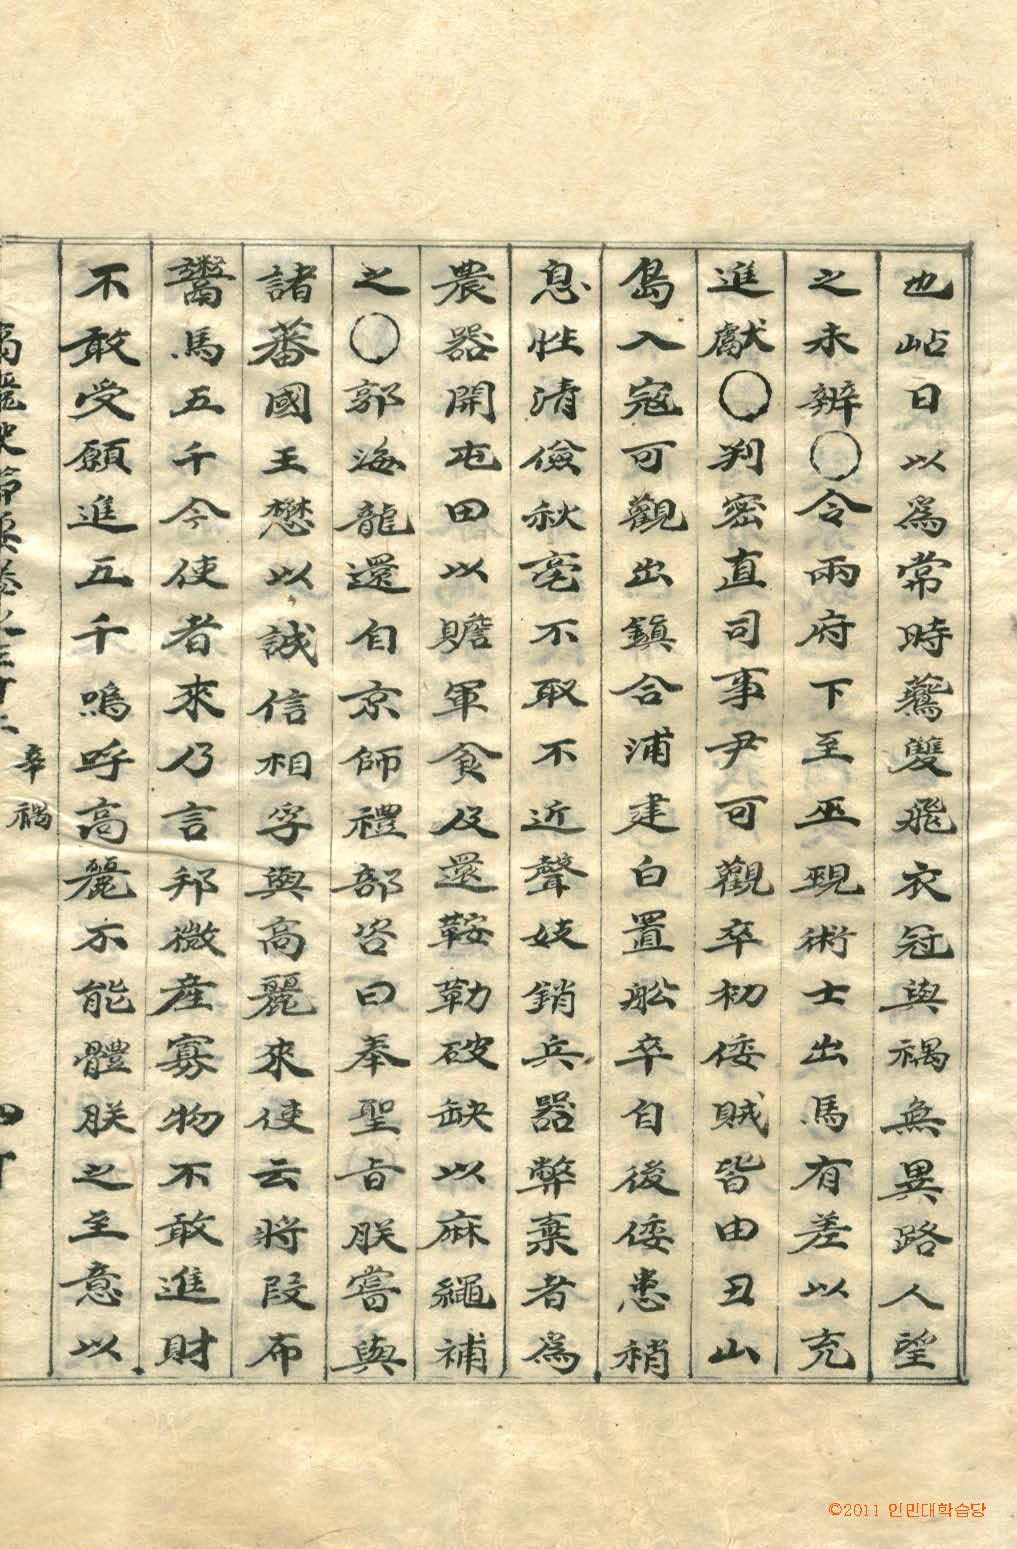 也岾日以爲常時鷰雙飛衣冠與禑無異路人望
之未辨○令兩府下至巫覡術士出馬有差以充
進獻○判密直司事尹可觀卒初倭賊皆由丑山
島入寇可觀出鎭合浦建白置舩卒自後倭患稍
息性清儉秋毫不取不近聲妓銷兵器弊棄者爲
農器開屯田以贍軍食及還鞍勒破缺以麻繩補
之○郭海龍還自京師禮部咨曰奉聖旨朕嘗與
諸蕃國王懋以誠信相孚與高麗來使云將段布
鬻馬五千今使者來乃言邦微産寡物不敢進財
不敢受願進五千嗚呼高麗不能體朕之至意以
辛禑
©2011 인민대학습당